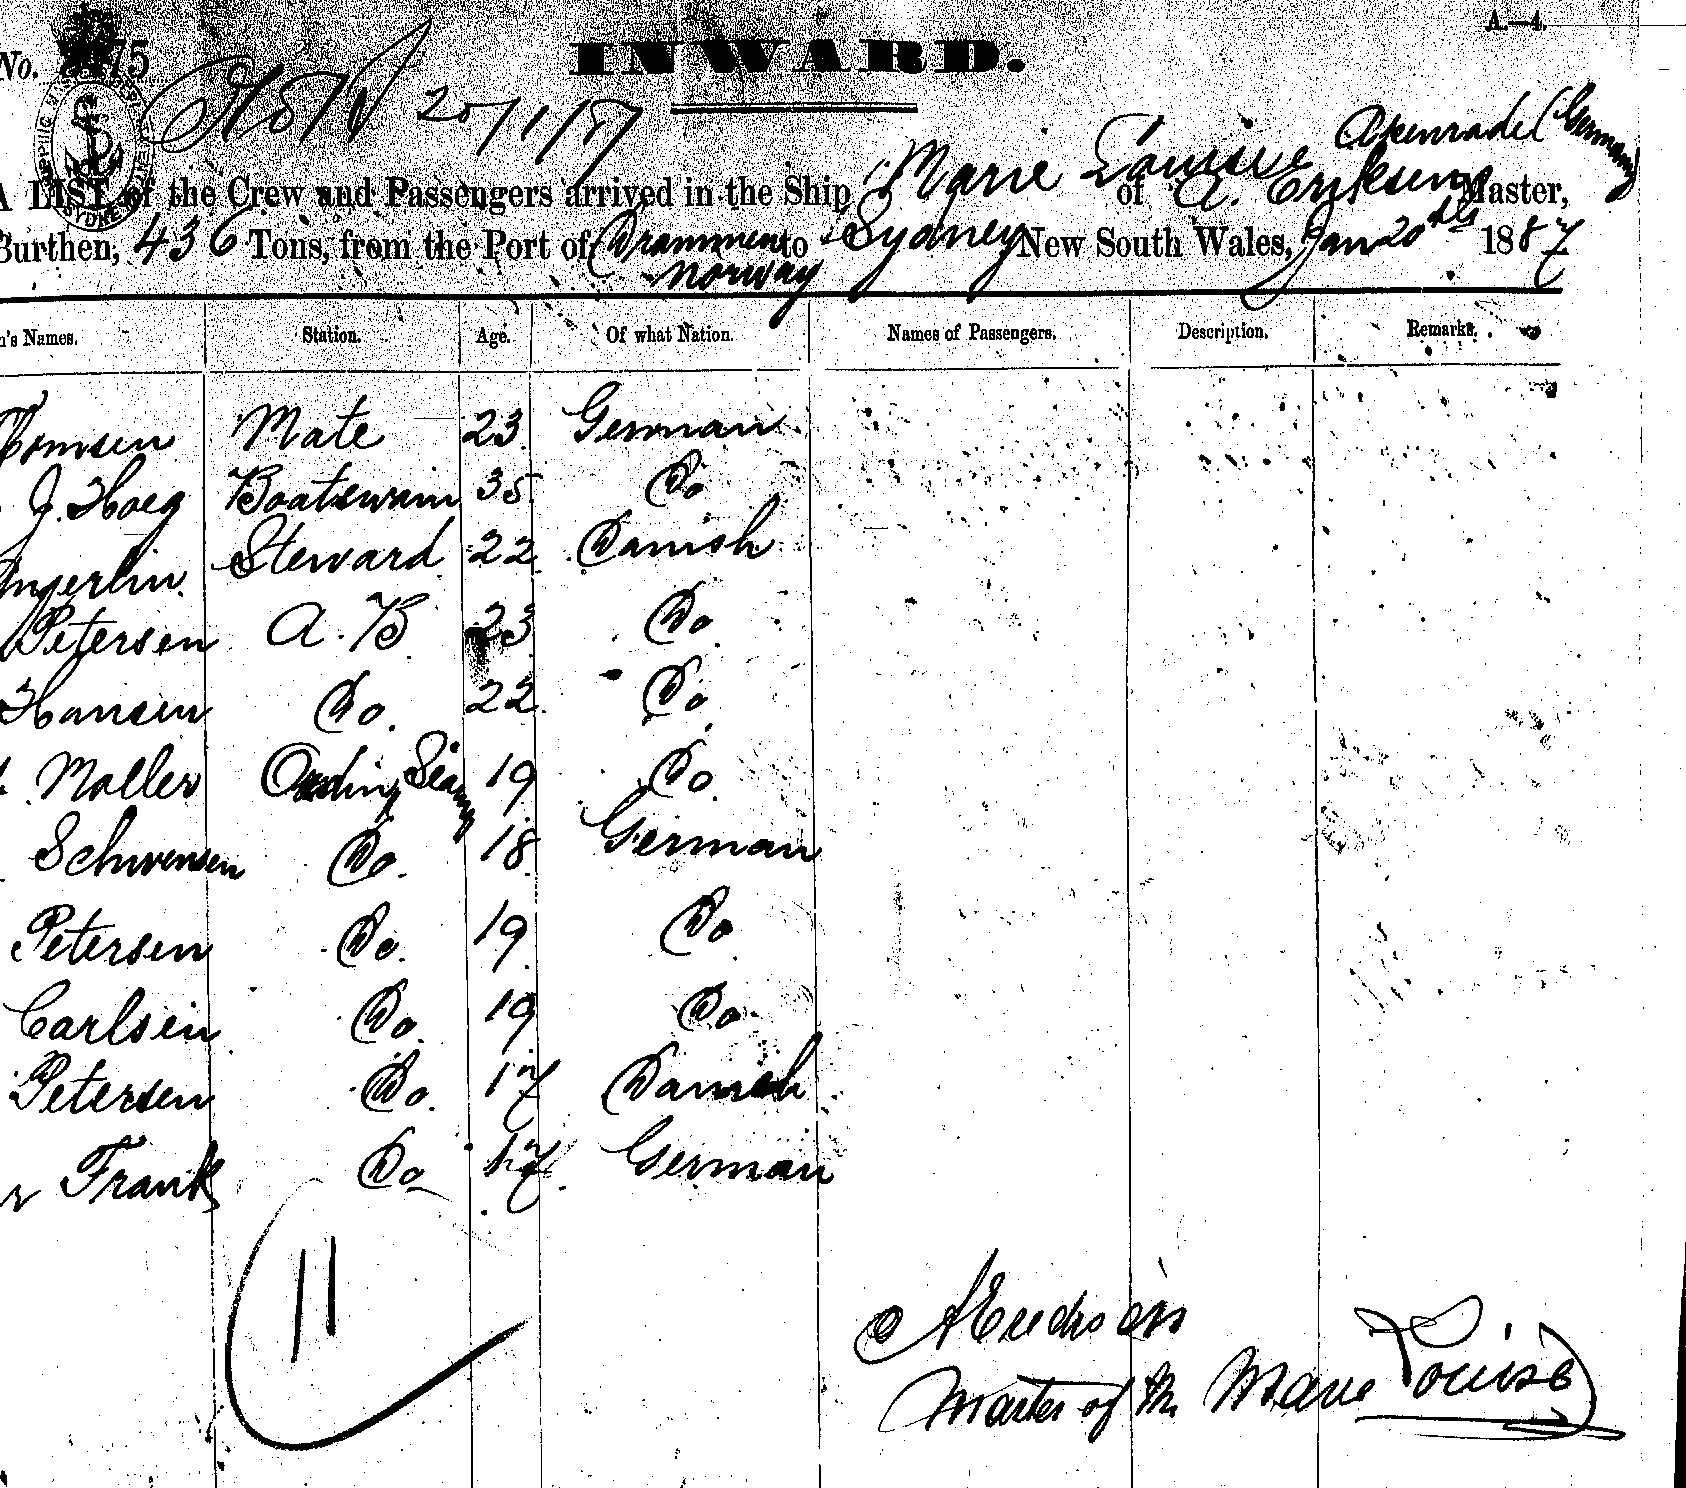 A—4.
No. 75
INWARD.
20/1/87
Apenrade (Germany)
A LIST of the Crew and Passengers arrived in the Ship Marie Louise of A. Eriksen Master,
Burthen, 436 Tons, from the Port of Drammen Norway to Sydney New South Wales, Jan 20th 1887
's Names. Station. Age. Of what Nation. Names of Passengers. Description. Remarks.
Thomsen Mate 23 German
J. Hoeg Boatswain 35 Do
Steward 22 Danish
Petersen A.B 23 Do
Hansen Do. 22 Do
Moller Ordiny Seaman 19 Do
Schwensen Do. 18 German
Petersen Do. 19 Do
Carlsen Do. 19 Do
Petersen Do. 17 Danish
Frank Do 17 German
11
Master of the Marie Louise